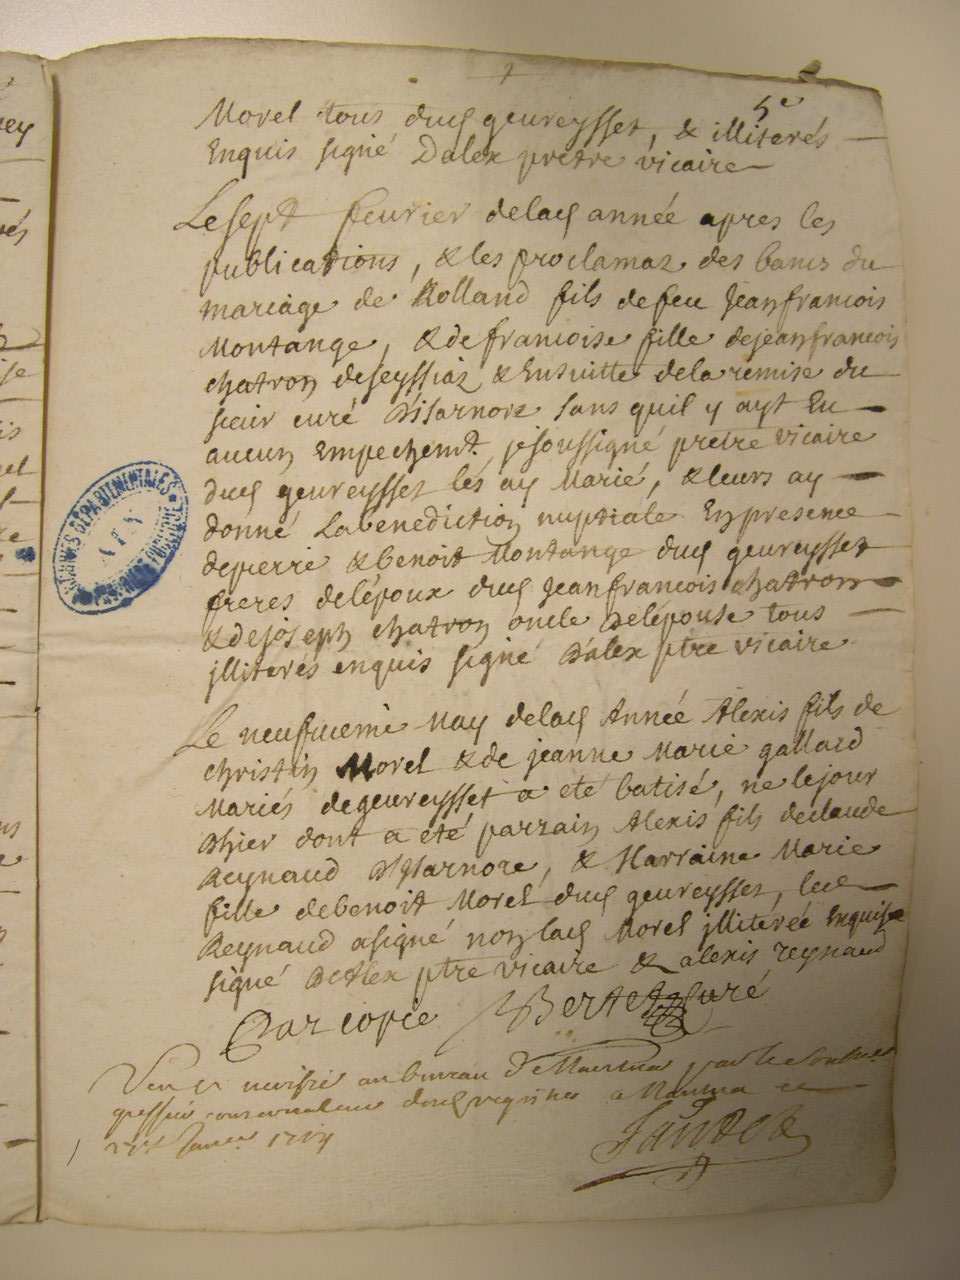 5e
Morel tous duq geureysset, & illiterés
Enquis signé Dalex pretre vicaire
Le sept feurier delaq année apres les
publications, & les proclamaz des bancs du
mariage de Rolland fils defeu Jeanfrancois
Montange, & de francoise fille dejeanfrancois
chatron deseyssiaz & Ensuitte delaremise du
sieur curé d'isarnore sans quil y ayt Eu
aucun Empechemt. jesoussigné pretre vicaire
duq geureysset les ay Marié, & leurs ay
donné Labenediction nuptiale Enpresence
depierre & benoit Montange duq geureysset
freres delépoux duq Jeanfrancois chatron
& dejoseph chatron oncle delépouse tous
jlliterés enquis signé Dalex ptre vicaire
Le neufvieme May delaq Année Alexis fils de
christin Morel & de jeanne Marie galland
Mariés degeureysset a eté batisé, ne lejour
dhier dont a eté parrain Alexis fils declaude
Reynaud d'Ysarnore, & Marraine Marie
fille debenoit Morel duq geureysset, leq
Reynaud asigné non laq Morel jlliterée Enquise
signé Dalex ptre vicaire & alexis reynaud
Par copie Bertet Curé
Veu et verifié au bureau de Nantua par le
greffier conservateur desq registres a Nantua ce
Janer